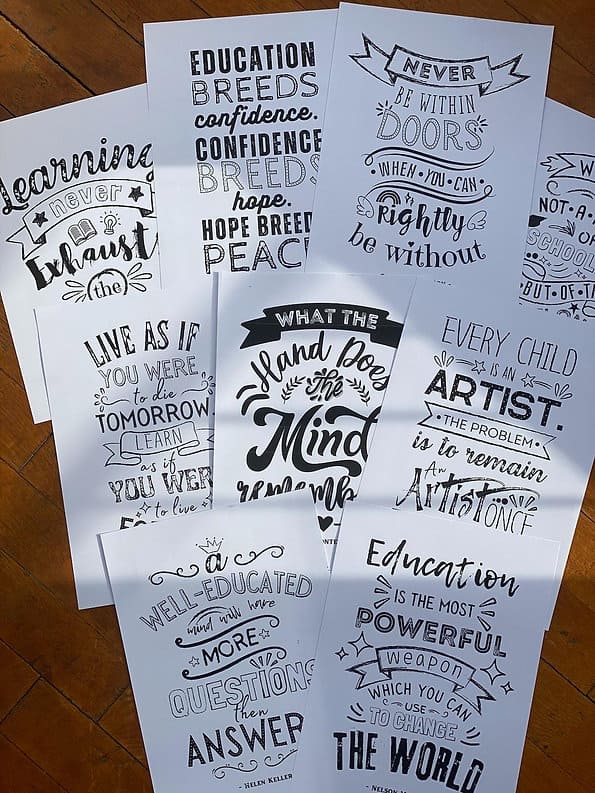 EDUCATION
BREEDS
confidence.
CONFIDENCE
BREEDS
hope.
HOPE BREED
PEAC
NEVER
BE WITHIN
DOORS
WHEN·YOU·CAN
Rightly
be without
Learning
never
Exhaust
the
W
NOT·A·
OF
SCHOOL
·BUT·OF·T
LIVE AS IF
YOU WERE
to die
TOMORROW.
LEARN
as if
YOU WER
to live
WHAT THE
Hand Does
The
Mind
rememb
EVERY CHILD
IS AN
ARTIST.
·THE PROBLEM·
is to remain
An
Artist ONCE
a
WELL-EDUCATED
mind will have
MORE
QUESTIONS
then
ANSWER
- HELEN KELLER
Education
IS THE MOST
POWERFUL
weapon
WHICH YOU CAN
USE
TO CHANGE
THE WORLD
- NELSON